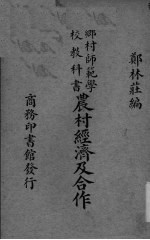 鄭林莊編
鄉村師範學
校教科書
農村經濟及合作
商務印書館發行